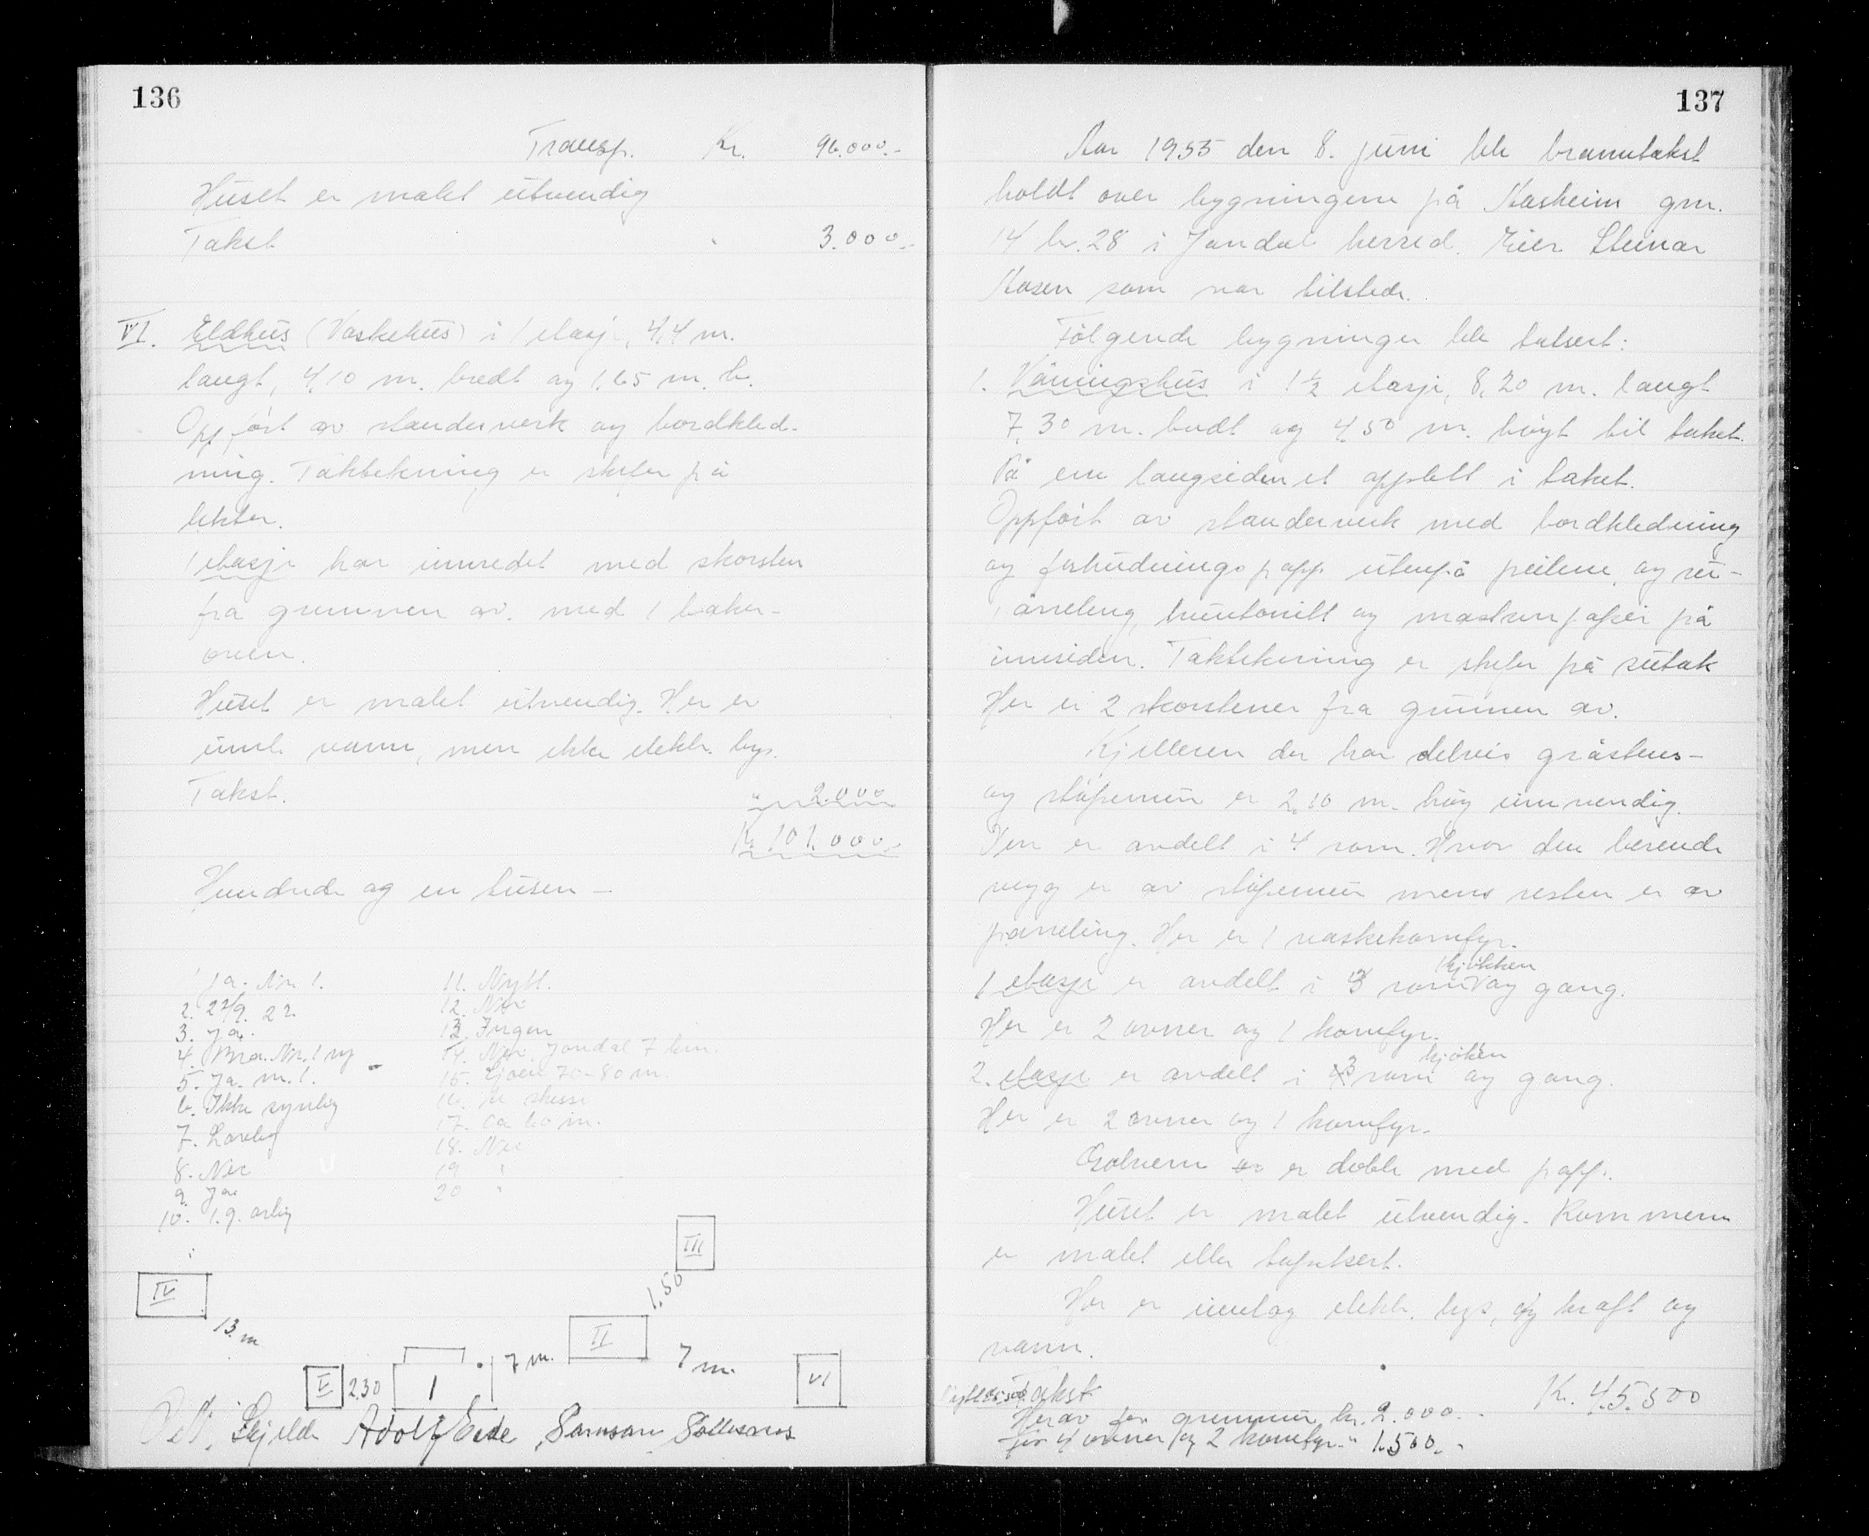 136
Transp. Kr. 96.000.-
Huset er malet utvendig
Takst " 3.000.-
VI. Eldhus (Vaskehus) i 1 etasje, 4,4 m.
langt, 4,10 m. bredt og 1,65 m. h.
Oppført av standerverk og bordkled-
ning. Taktekning er skifer på
lekter.
1 etasje har innredet med skorsten
fra grunnen av. med 1 baker-
oven.
Huset er malet utvendig. Her er
innl. vann, men ikke elektr. lys.
Takst. " 2.000
Kr. 101.000.-
Hundrede og en tusen -
1 ja. Nr. 1.
2. 22/9. 22.
3. ja.
4. Bra. Nr. 1 ny
5. ja. m. 1.
6. Ikke synlig
7. Lovlig
8. Nei
9. Ja
10. 1.g. årlig
11. Nytt.
12. Nei
13. Ingen
14. Nei. Jondal 7 km.
15. Sjøen 70-80 m.
16.
17. ca 60 m.
18. Nei
19 "
20 "
III
IV
1,50
13 m
II
7 m.
7 m.
V
2.30
I
VI
Skjelde Adolf Eide Samson Sollesnes
137
Aar 1955 den 8. juni ble branntakst
holdt over bygningene på Aasheim gnr.
14 br. 28 i Jondal herred. Eier Steinar
Aasen som var tilstede.
Følgende bygninger ble taksert:
1. Våningshus i 1½ etasje, 8,20 m. langt
7,30 m. bredt og 4,50 m. høyt til taket.
På ene langsiden et opplett i taket.
Oppført av standerverk med bordkledning
og forhudningspapp utenpå peilene, og ru-
panneling, huntonitt og maskinpapir på
innsiden. Taktekning er skifer på sutak
Her er 2 skorstener fra grunnen av.
Kjelleren der har delvis gråstens-
og støpemur er 2,10 m. høy innvendig.
Den er avdelt i 4 rom. Hvor den berende
vegg er av støpemur mens resten er av
panneling. Her er 1 vaskekomfyr.
1 etasje er avdelt i 3 rom kjøkken og gang.
Her er 2 ovner og 1 komfyr.
2. etasje er avdelt i 3 rom kjøken og gang.
Her er 2 ovner og 1 komfyr.
Golvene er doble med papp.
Huset er malet utvendig. Rommene
er malet eller tapetsert.
Her er innlag elektr. lys, og kraft og
vann.
Takst Kr. 45.500
Herav for grunnmur kr. 2.000.-
for 4 ovner og 2 komfyr " 1.500.-